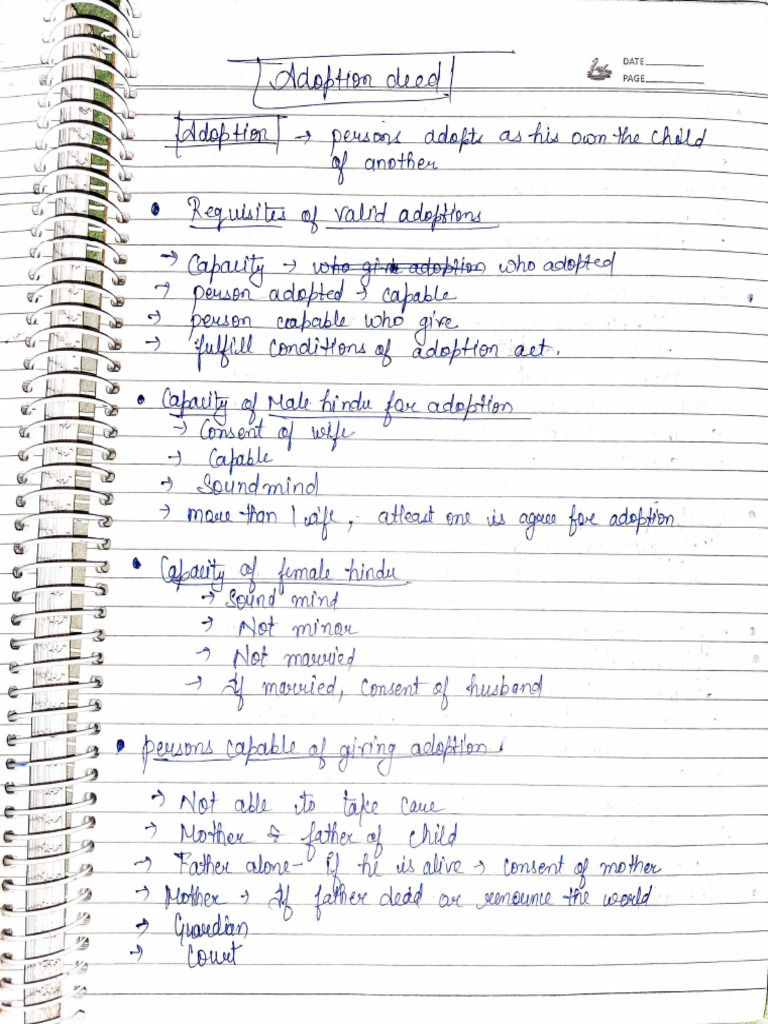 Adoption deed
DATE
PAGE
Adoption → persons adopts as his own the child
of another
• Requisites of valid adoptions
→ Capacity → who give adoption who adopted
→ person adopted → capable
→ person capable who give
→ fulfill conditions of adoption act.
• Capacity of Male hindu for adoption
→ Consent of wife
→ Capable
→ Sound mind
→ more than 1 wife, atleast one is agree for adoption
• Capacity of female hindu
→ Sound mind
→ Not minor
→ Not married
→ If married, consent of husband
• persons capable of giving adoption.
→ Not able to take care
→ Mother & father of child
→ Father alone - If he is alive → consent of mother
→ Mother → If father dead or renounce the world
→ Guardian
→ Court